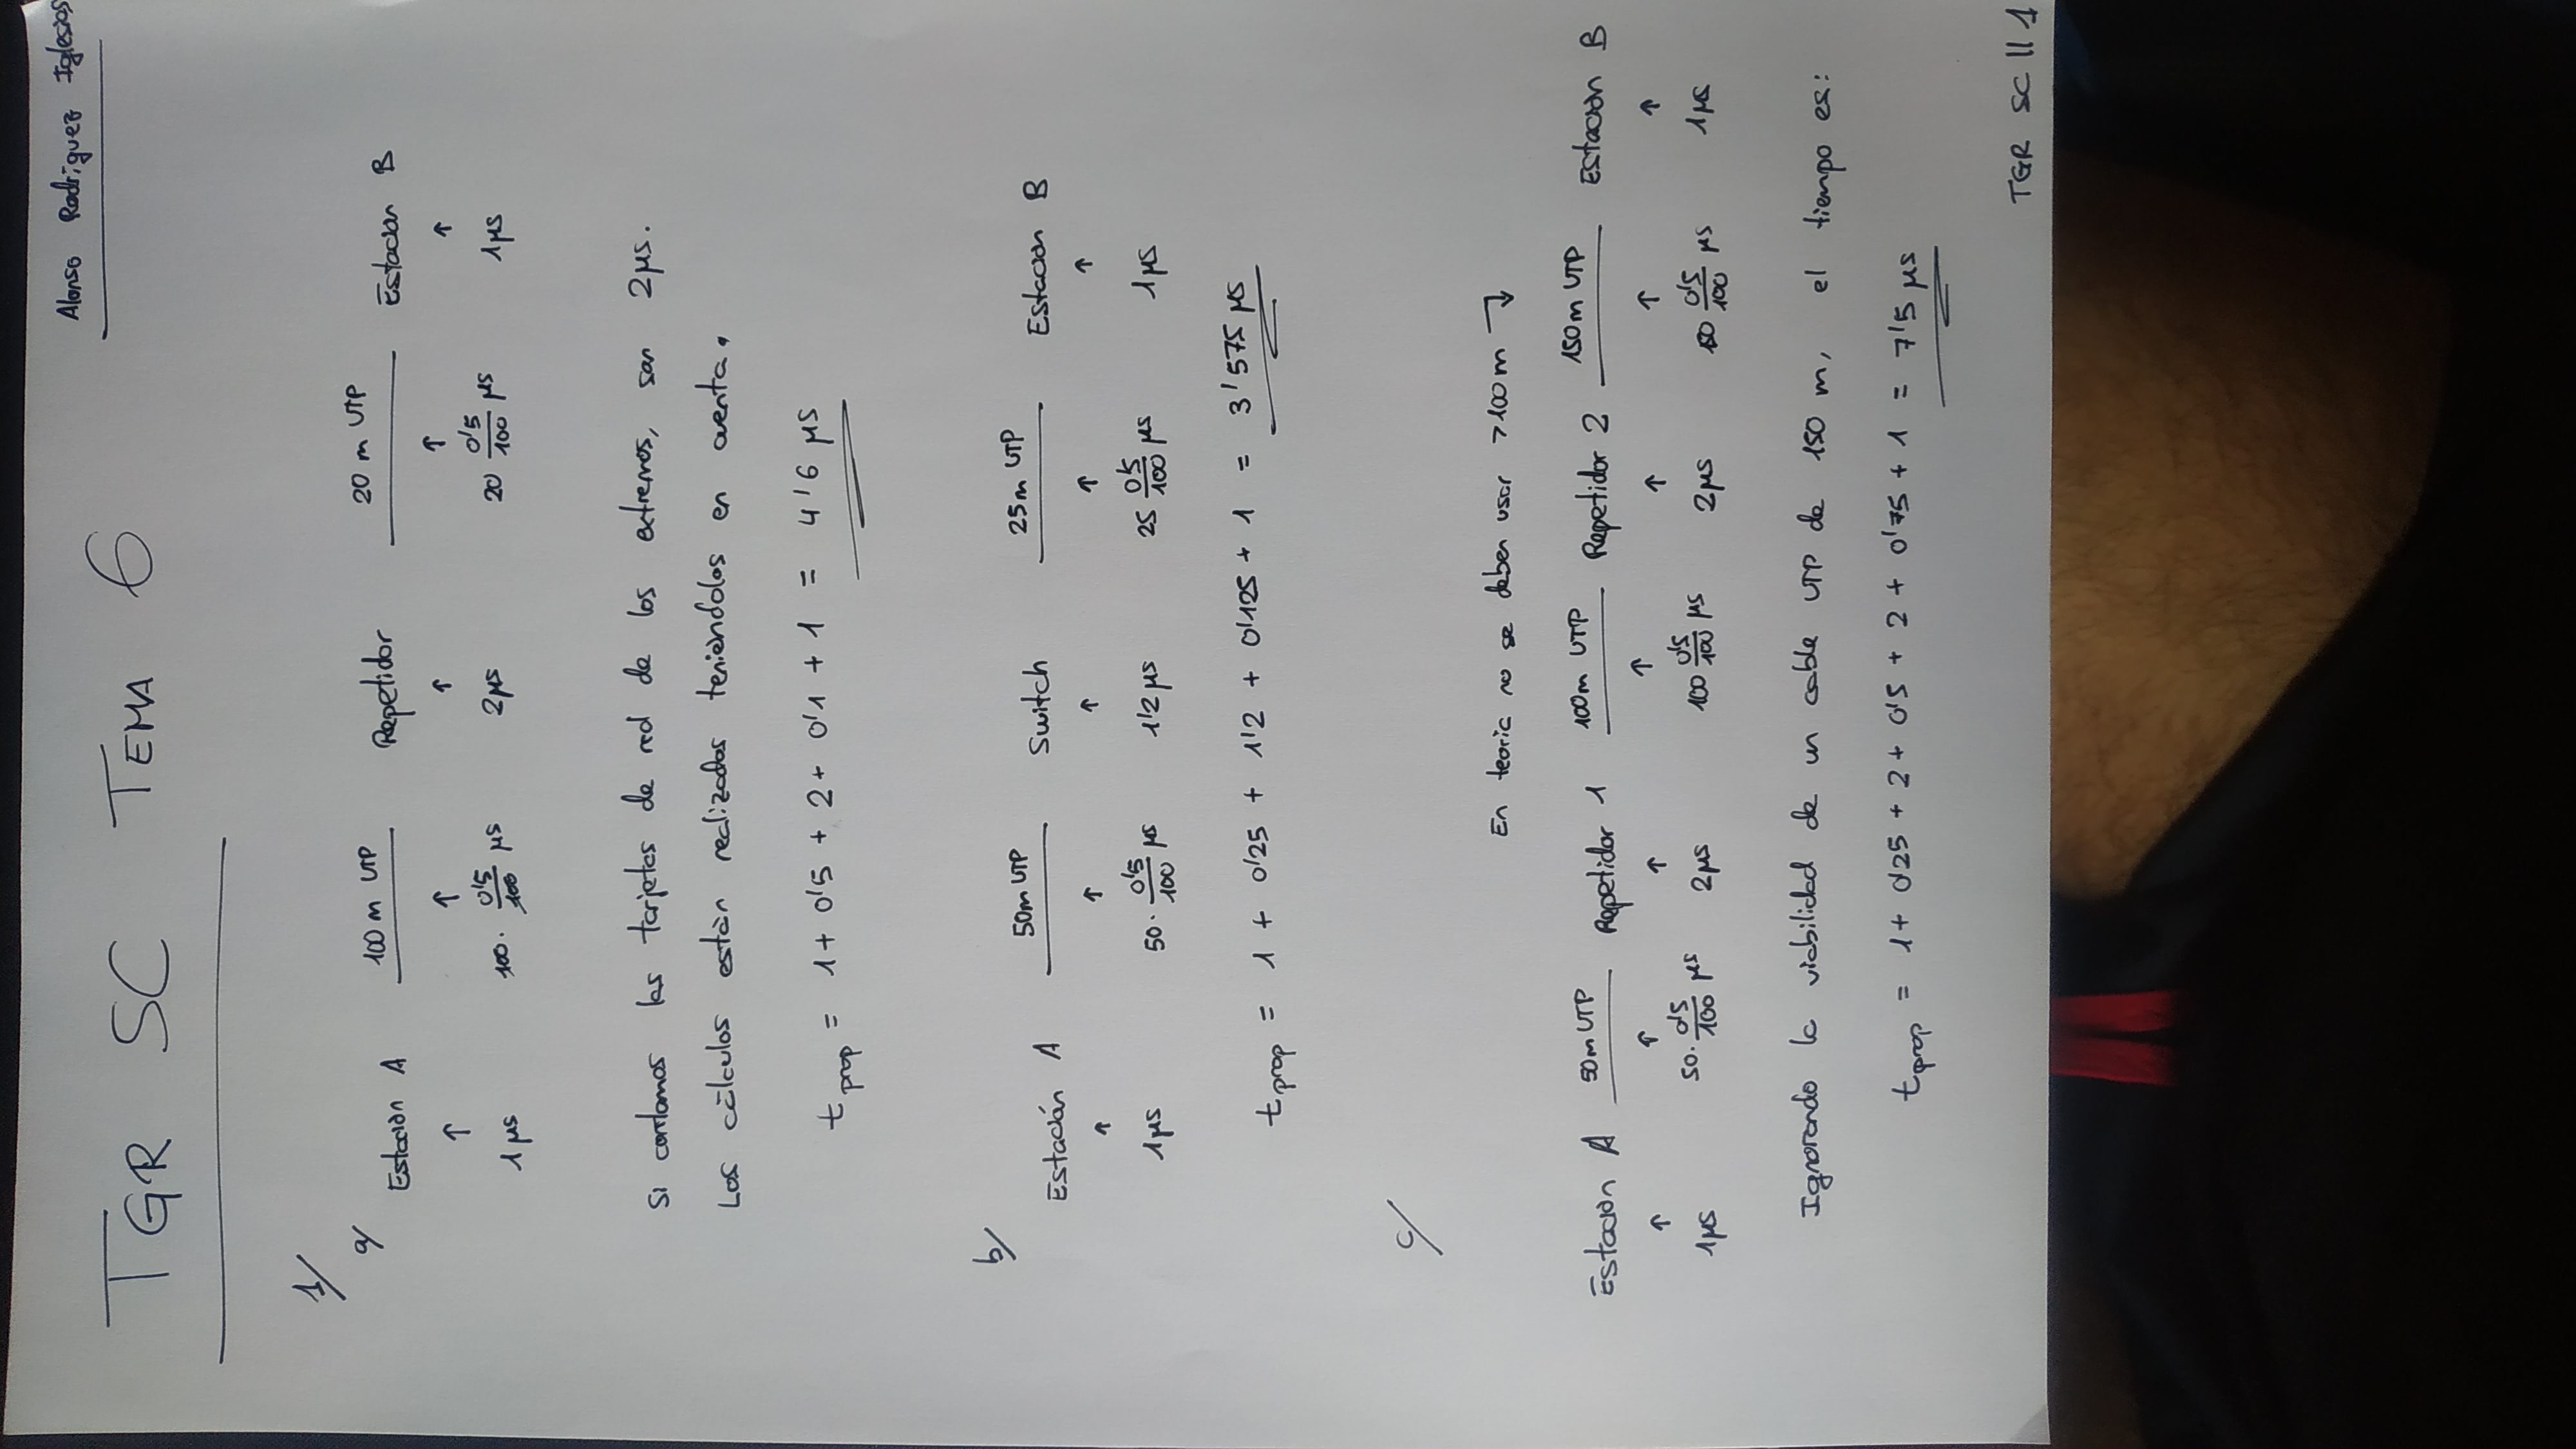 Alonso Rodríguez Iglesias
TGR SC TEMA 6
1/
a/
Estación A 100 m UTP Repetidor 20 m UTP Estacion B
↑ ↑ ↑ ↑ ↑
1 μs 100 · 0'5/100 μs 2 μs 20 0'5/100 μs 1 μs
Si contamos las tarjetas de red de los extremos, son 2 μs.
Los cálculos están realizados teniéndolos en cuenta.
t prop = 1 + 0'5 + 2 + 0'1 + 1 = 4'6 μs
b/
Estación A 50m UTP Switch 25m UTP Estacion B
↑ ↑ ↑ ↑ ↑
1 μs 50 · 0'5/100 μs 1'2 μs 25 0'5/100 μs 1 μs
t prop = 1 + 0'25 + 1'2 + 0'125 + 1 = 3'575 μs
c/
En teoria no se deben usar >100 m
Estacion A 50m UTP Repetidor 1 100m UTP Repetidor 2 150m UTP Estacion B
↑ ↑ ↑ ↑ ↑ ↑ ↑
1 μs 50 · 0'5/100 μs 2 μs 100 0'5/100 μs 2 μs 150 0'5/100 μs 1 μs
Ignorando la viabilidad de un cable UTP de 150 m, el tiempo es:
t prop = 1 + 0'25 + 2 + 0'5 + 2 + 0'75 + 1 = 7'5 μs
TGR SC || 1